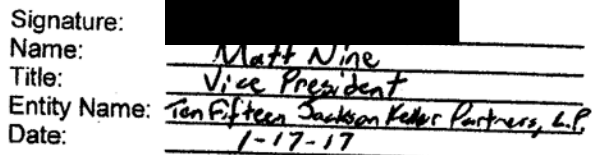 Signature:
Name: Matt Nine
Title: Vice President
Entity Name: Ten Fifteen Jackson Keller Partners, L.P.
Date: 1-17-17